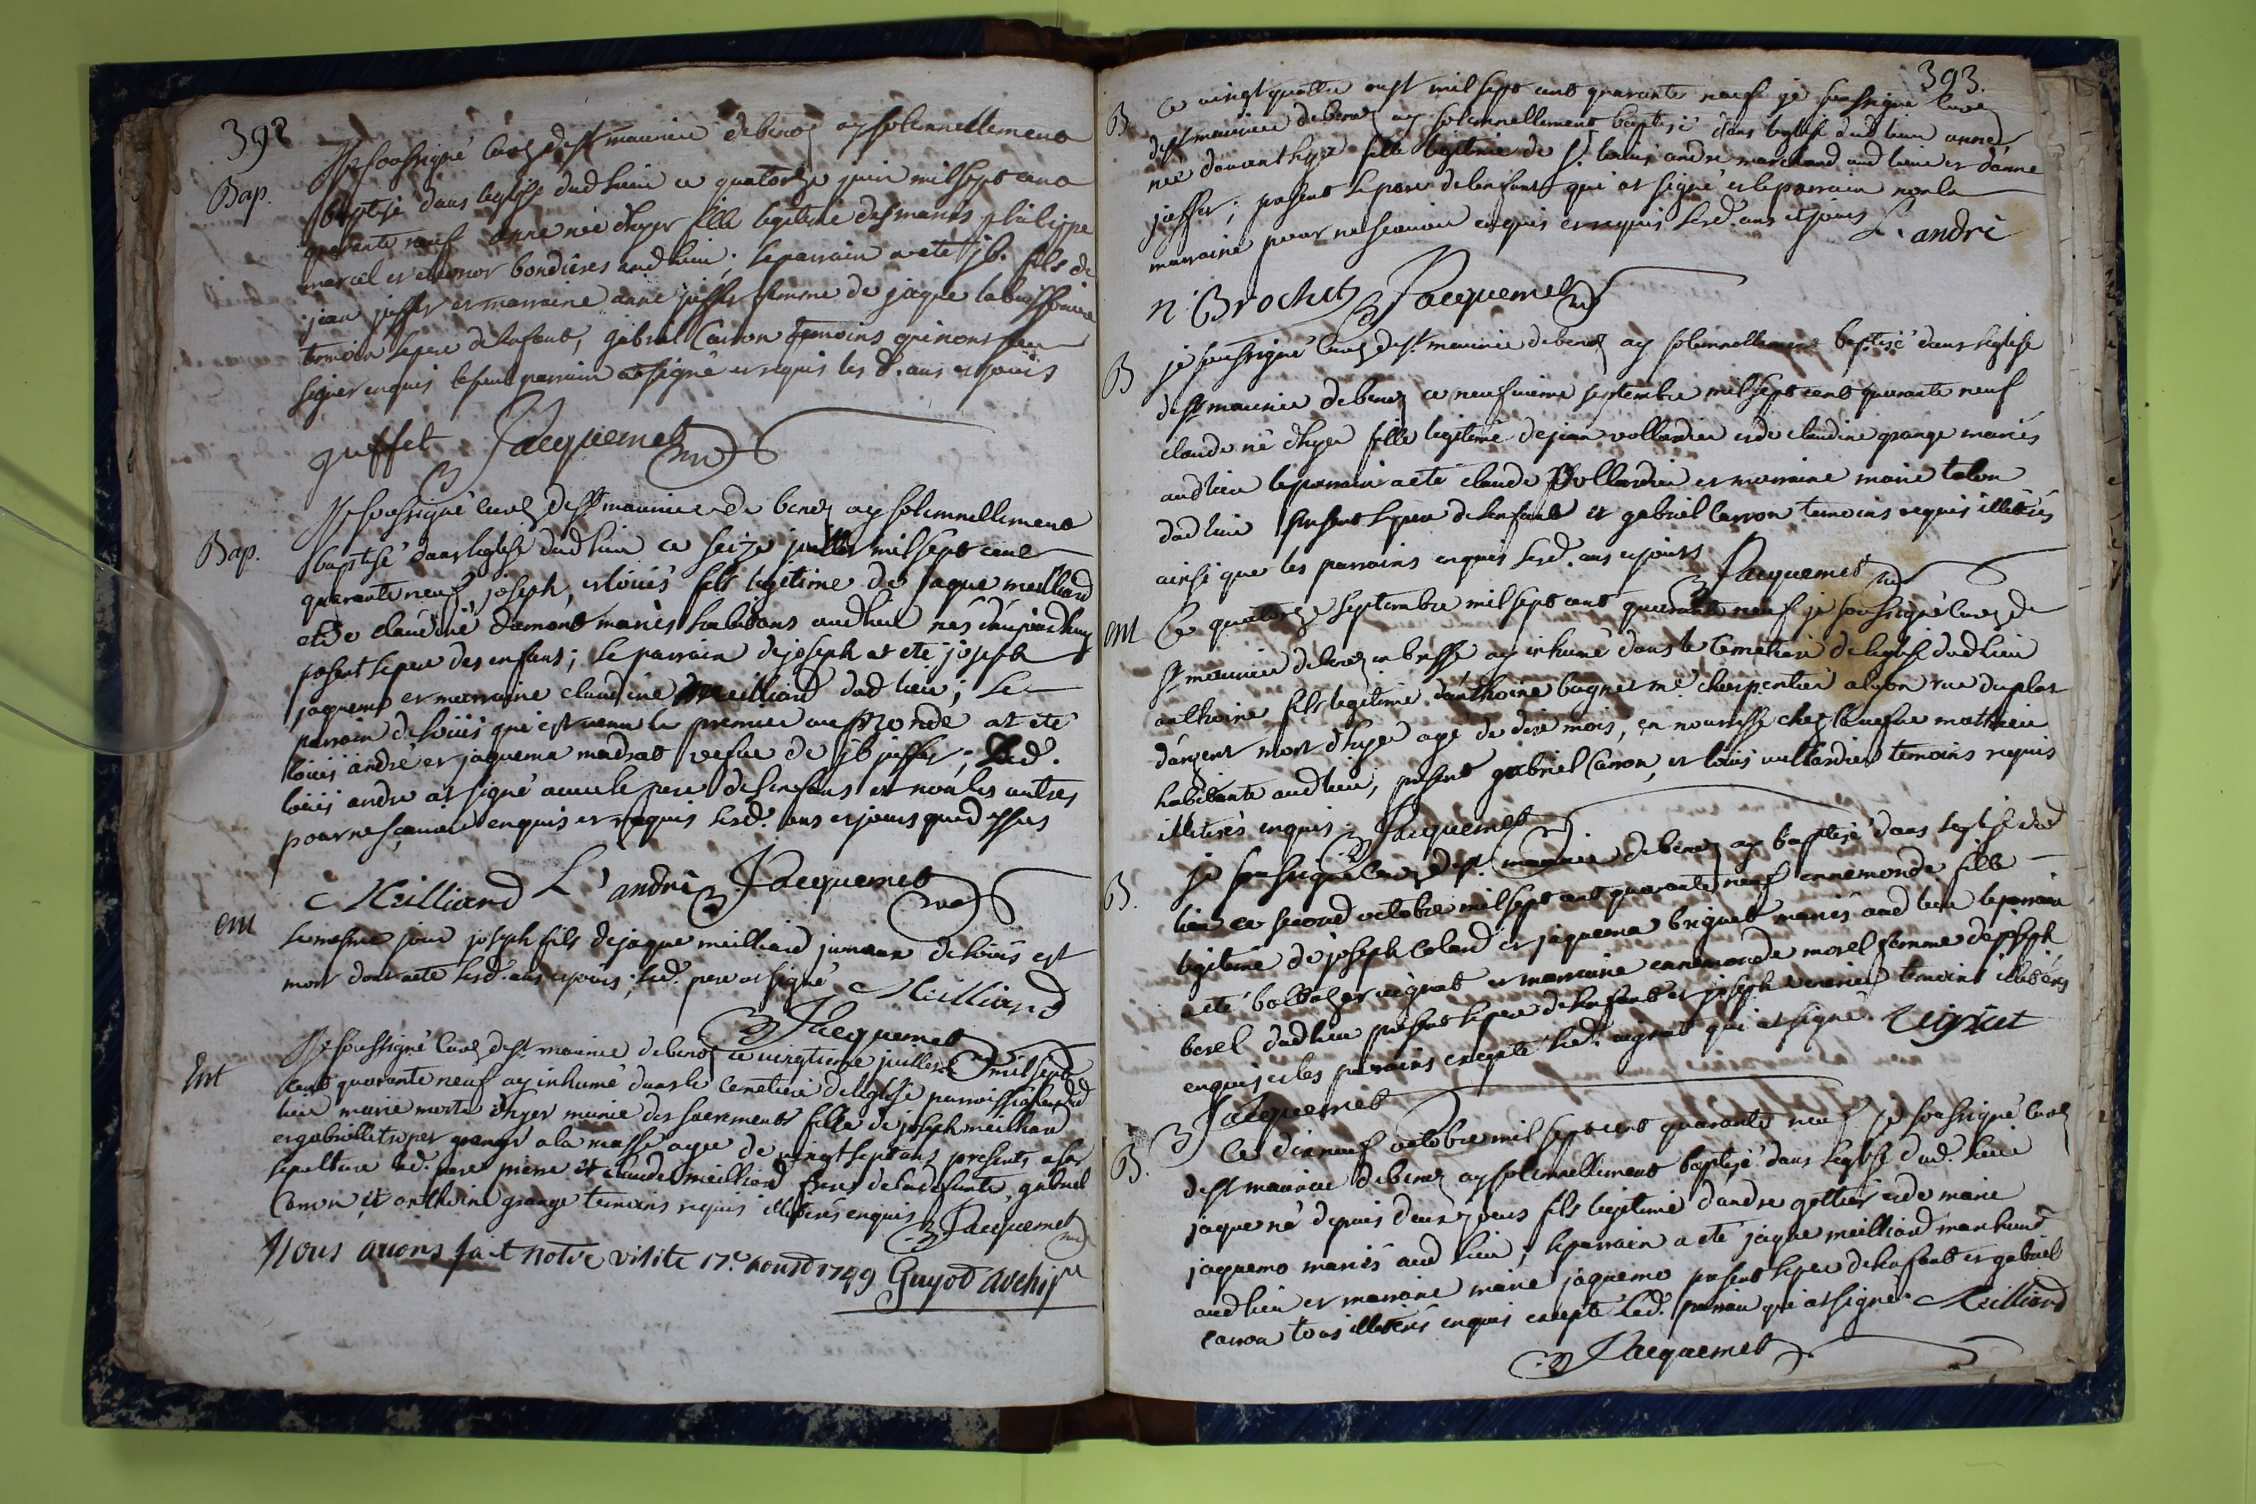 392
Bap.
Je soussigné curé de st maurice de benos ay solemnellement
baptisé dans leglise dud lieu ce quatorze juin mil sept cent
quarante neuf anne née d'hyer fille legitime des mariés philippe
marcel et eleonor bondieres aud lieu; le parrain a eté jb. fils de
jean juffet et marraine anne juffet femme de jaque
temoin le pere de lenfant, gabriel Carron temoins qui nont sceu
signer enquis le seul parrain at signé et requis les d. ans et jours
juffet Jacquemet
Bap.
Je soussigné curé de st maurice de benos ay solemnellement
baptisé dans leglise dud lieu ce seize juillet mil sept cent
quarante neuf joseph, et loüis fils legitime de jaque meilliard
et de claudine damont mariés habitans aud lieu nés daujourdhuy
present le pere des enfans; le parrain de joseph at eté joseph
jaquemo et marraine claudine meilliard dud lieu; le
parrain de loüis qui est venu le premier au monde at eté
loüis andré et jaquema vefue de jb juffet; led.
loüis andre at signé avec le pere des enfans et non les autres
pour ne sçauoir enquis et requis lesd. ans et jours que dessus
Meilliard L'andrè Jacquemet
ent
Le mesme jour joseph fils de jaque meilliard jumeau de loüis est
mort dont acte lesd. ans et jours; led. pere at signé Meilliard
Jacquemet
Ent
Je soussigné curé de st maurice de benos ce vingtieme juillet mil sept
cent quarante neuf ay inhumé dans le cemetiere de leglise parroissiale dud
lieu marie morte d'hyer munie des sacrements fille de joseph meilliard
et gabrielle granger a la masse agée de vingt sept ans presents a sa
sepulture led. pere pierre et claude meilliard freres de la defunte, gabriel
Carron et anthoine grange temoins requis illiterés enquis Jacquemet
Nous auons fait notre visite 17.e aoust 1749 Guyot archip.re
393.
B
Ce vingt quatre oust mil sept cent quarante neuf je soussigné curé
de st maurice de benos ay solemnellement baptisé dans leglise dud lieu anne
née dauant hyer fille legitime de sr. loüis andre marchand aud lieu et danne
juffet; present le pere de lenfant qui at signé et le parrain non la
marraine pour ne scauoir enquis et requis lesd. ans et jours L. andrè
n. Brochet Jacquemet
B
je soussigné curé de st. maurice de benos ay solemnellement baptisé dans leglise
de st maurice de benos ce neufvieme septembre mil sept cent quarante neuf
claude né d'hyer fille legitime de jean vollardier et de claudine grange mariés
aud lieu le parrain a eté claude Vollardier et marraine marie talon
dud lieu present le pere de lenfant et gabriel Carron temoins requis illiterés
ainsi que les parrains enquis lesd. ans et jours Jacquemet
ent
Ce quatorze septembre mil sept cent quarante neuf je soussigné curé de
st maurice de benos en bresse ay inhumé dans le cemetiere de leglise dud lieu
anthoine fils legitime danthoine bugnet me. cherpentier a lyon rue du plat
dargent mort d'hyer agé de dix mois, en nourrisse chez la vefue mathieu
habitante aud lieu; present gabriel Carron, et loüis vullardier temoins requis
illiterés enquis Jacquemet
B.
je soussigné curé de st. maurice de benos ay baptisé dans leglise dud
lieu ce second octobre mil sept cent quarante neuf ennemonde fille
legitime de joseph Coland et jaquema briguet mariés aud lieu le parrain
a eté baltazar vignat et marraine ennemonde morel femme de joseph
berel dud lieu present le pere de lenfant et joseph temoins illiterés
enquis et les parrains excepté led. vignat qui at signé. Vignat
Jacquemet
B.
Ce dixneuf octobre mil sept cent quarante neuf je soussigné curé
de st maurice de benos ay solemnellement baptisé dans leglise dud. lieu
jaque né depuis deux jours fils legitime dandre gottier et de marie
jaquemo mariés aud lieu; le parrain a eté jaque meilliard marchand
aud lieu et marraine marie jaquemo present le pere de lenfant et gabriel
carron tous illiterés enquis excepté led. parrain qui at signé. Meilliard
Jacquemet